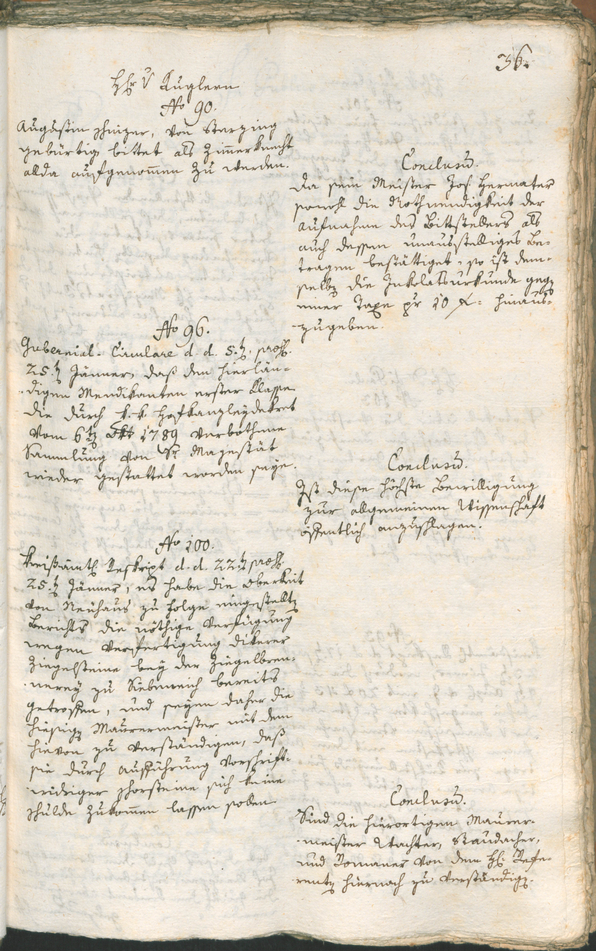 36.
HE. v Kuglern
No 90.
Augustin Hinzer, von Sterzing
gebürtig bittet als Zimmerknecht
alda aufgenommen zu werden.
Conclusum.
Da sein Meister Jos. Hermater
sowohl die Nothwendigkeit der
Aufnahme des Bittstellers als
auch dessen unausstelliges Be-
tragen bestättiget, so ist dem-
selben die Inkolatsurkunde gegen
einer Taxe pr 10 f. hinaus-
zugeben.
No 96.
Gubernial. Circulare d. d. 5ten, praes.
25ten Jänner, daß den hierlän-
digen Mendikanten erster Classe
die durch k. k. Hofkanzleydekret
vom 6ten Okt 1789 verbothene
Sammlung von Sr. Magestät
wieder gestattet worden seye.
Conclusum.
Ist diese höchste Bewilligung
zur allgemeinen Wissenschaft
öffentlich anzuschlagen.
No 100.
Kreisämtl. Reskript d. d. 22ten praes.
25ten Jänner, es habe die Oberkeit
von Neuhaus zu folge eingestellten
Berichts die nöthige Verfügung
wegen Verfertigung dikerer
Ziegelsteine bey der Ziegelbren-
nerey zu bereits
getroffen, und seyen daher die
hiesigen Maurermeister mit dem
hievon zu verständigen, daß
sie durch Aufführung Vorschrift-
widriger Horsteine sich keine
Schulde zukommen lassen sollen
Conclusum.
Sind die hierortigen Maurer-
meister Wachter, Staudacher,
und Romaner von dem HE. Refe-
renten hiernach zu verständigen.